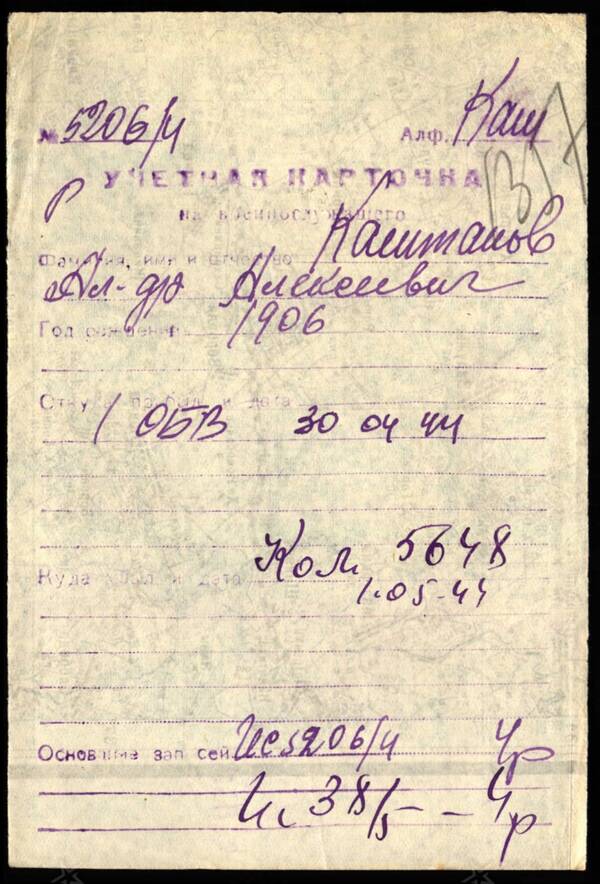 № 5206/ч Алф. Каш
УЧЕТНАЯ КАРТОЧКА
Р на военнослужащего
Фамилия, имя и отчество Каштанов
Ал-др Алексеевич
Год рождения 1906
Откуда прибыл и дата
1 ОБВ 30 04 44
Куда убыл и дата Ком. 5648
1.05-44
Основание записей Ис 5206/ч Чр
Ис 38/5 - - Чр